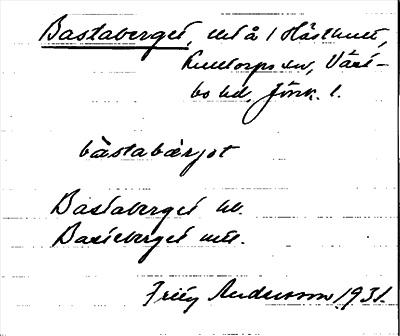 Bastaberget, utå 1 Hästhult,
Kulltorps sn, Väst-
bo hd, Jönk. l.
bàstabærjat
Bastaberget hb.
Basteberget mtl.
Fritz Andersson 1931.